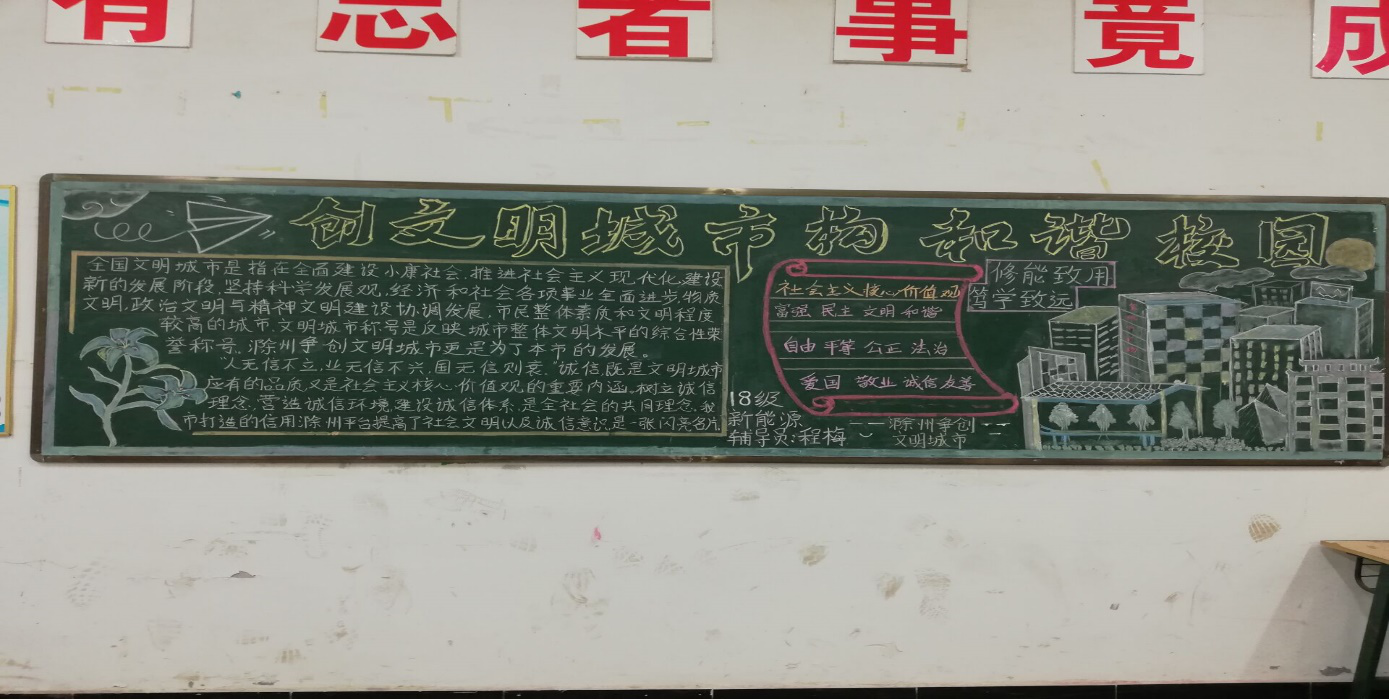 有志者事竟成
创文明城市构和谐校园
全国文明城市是指在全面建设小康社会,推进社会主义现代化建设
新的发展阶段,坚持科学发展观,经济和社会各项事业全面进步,物质
文明,政治文明与精神文明建设协调发展,市民整体素质和文明程度
较高的城市,文明城市称号是反映城市整体文明水平的综合性荣
誉称号,滁州争创文明城市更是为了本市的发展。
"人无信不立,业无信不兴,国无信则衰,"诚信既是文明城市
应有的品质,又是社会主义核心价值观的重要内涵,树立诚信
理念,营造诚信环境,建设诚信体系,是全社会的共同理念,我
市打造的信用滁州平台提高了社会文明以及诚信意识是一张闪亮名片
社会主义核心价值观
富强 民主 文明 和谐
自由 平等 公正 法治
爱国 敬业 诚信 友善
修能致用
笃学致远
18级
新能源
辅导员:程梅
——滁州争创——
文明城市